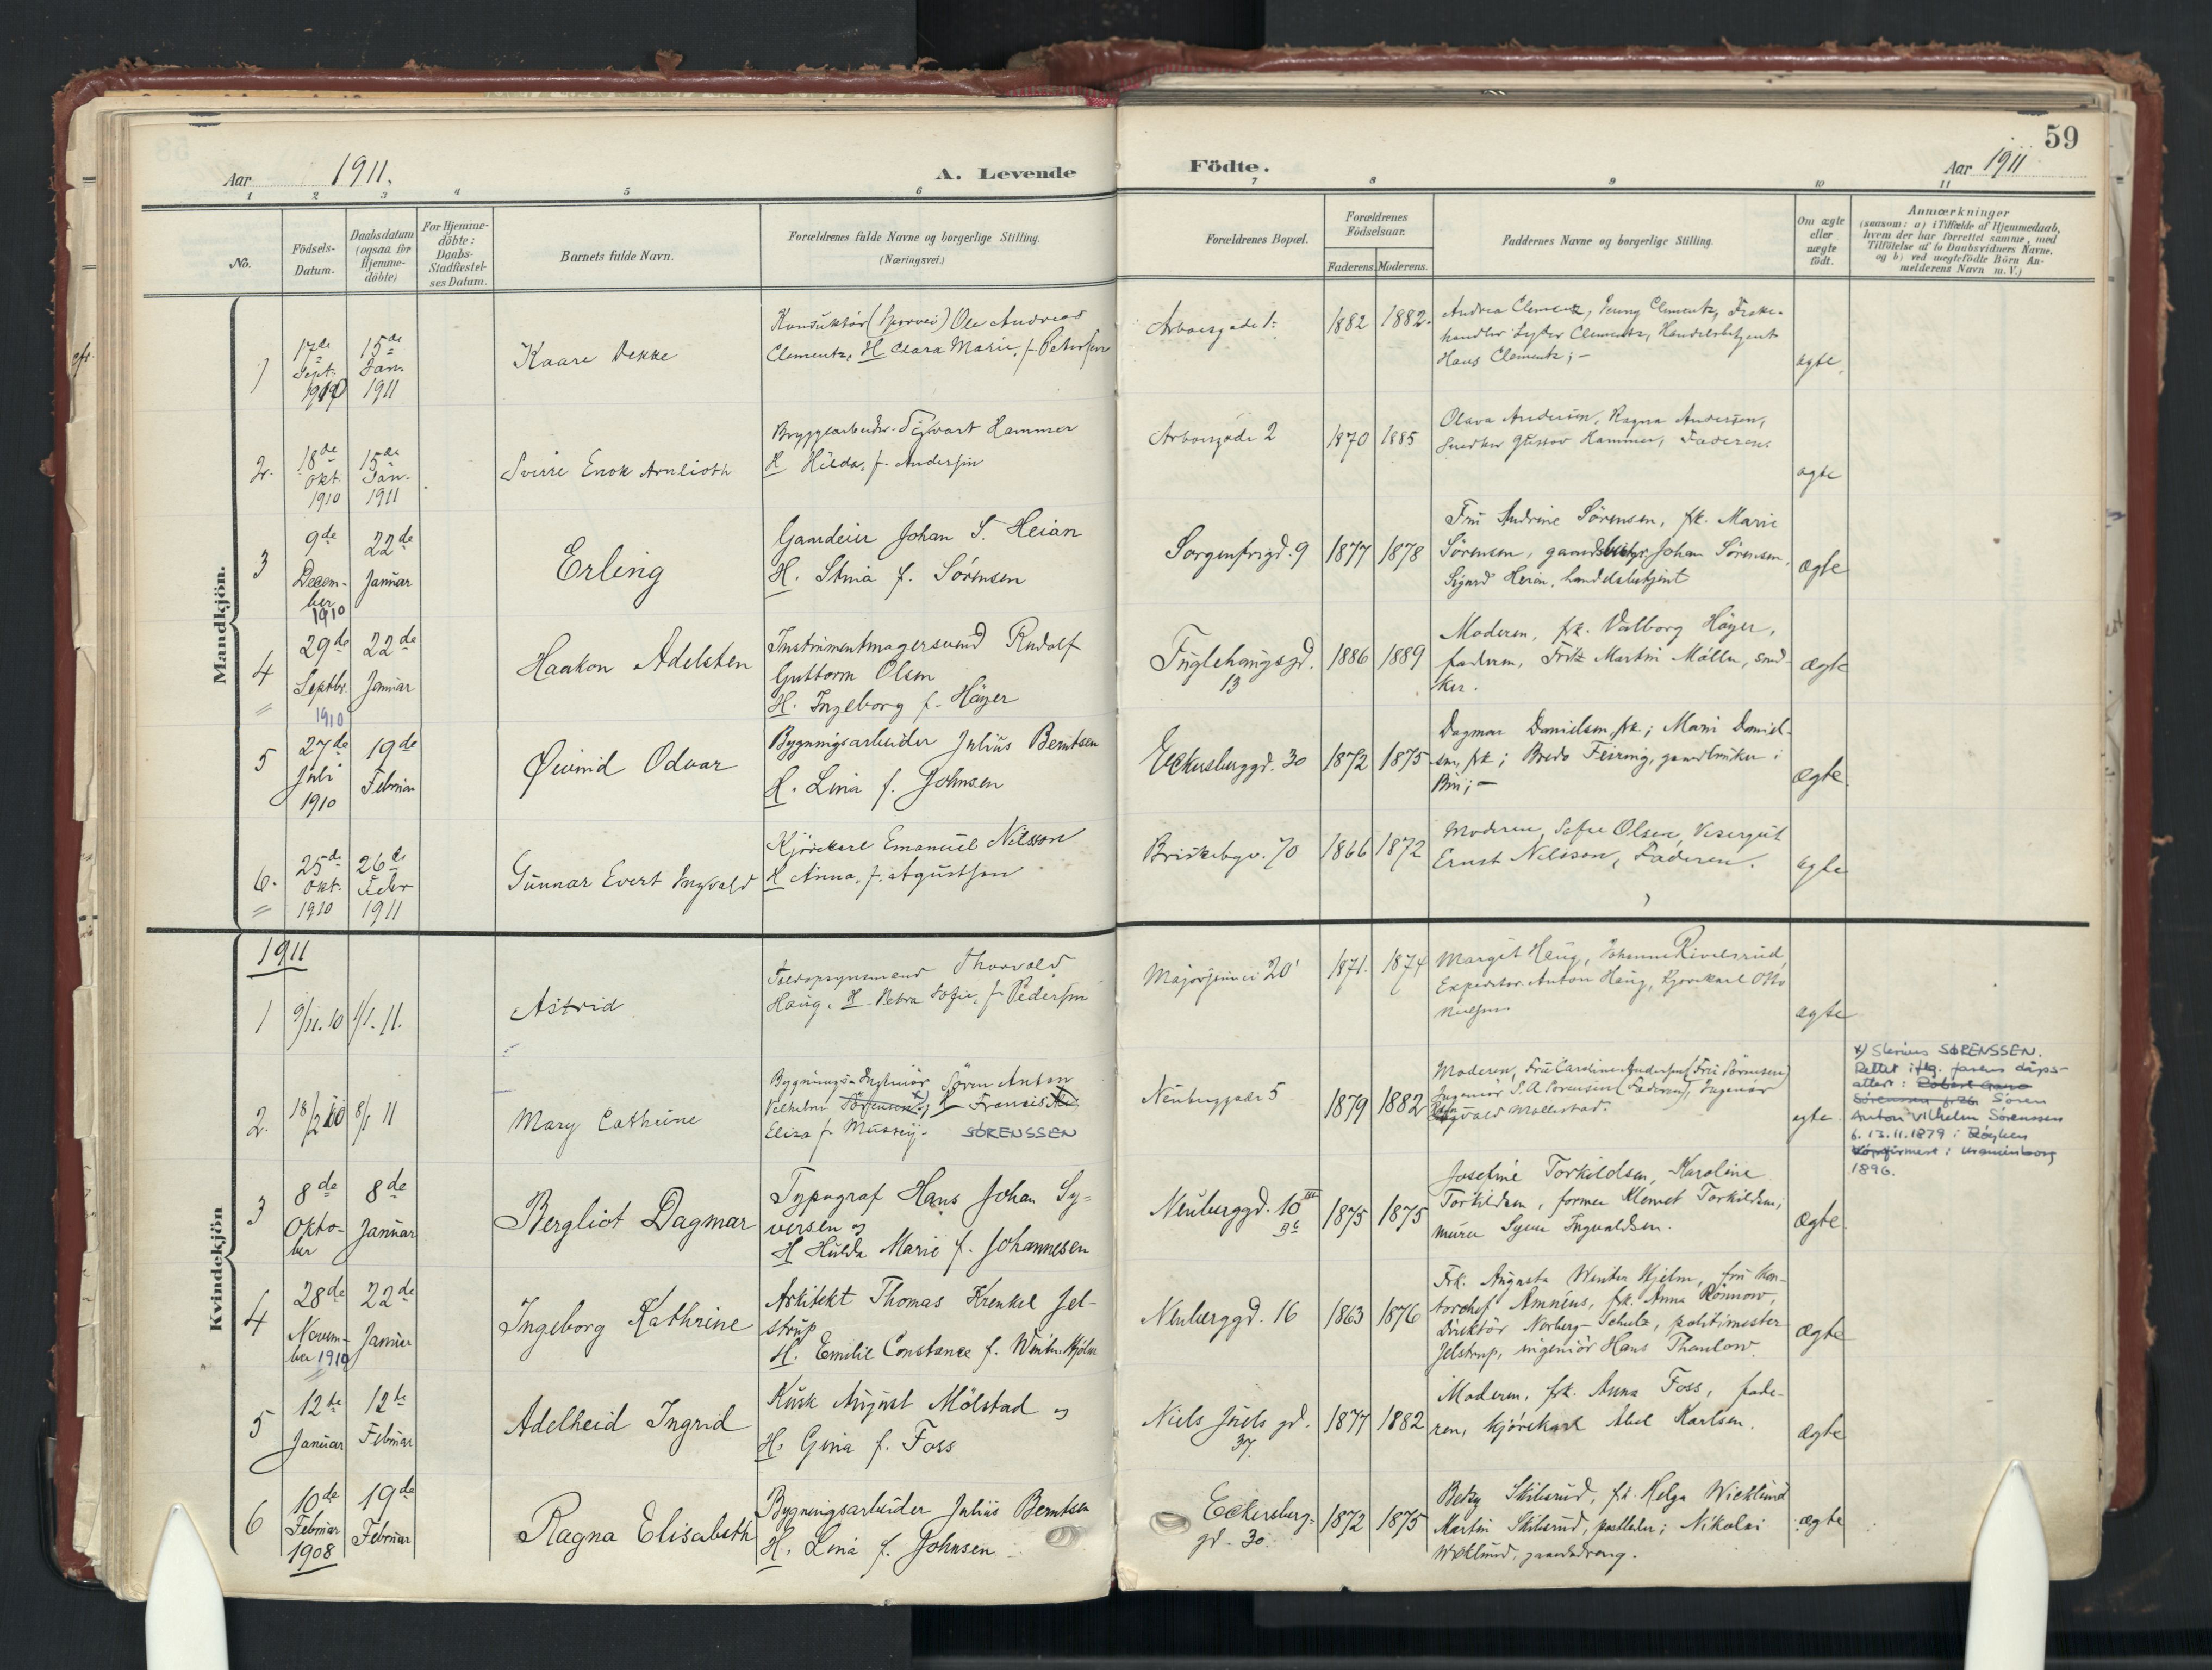 59
Aar 1911.
A. Levende
Födte.
Aar 1911
1 2 3 4 5 6 7 8 9 10 11
No.
Födsels-
Datum.
Daabsdatum
(ogsaa for
Hjemme-
döbte)
For Hjemme-
döbte:
Daabs-
Stadfæstel-
ses Datum.
Barnets fulde Navn.
Forældrenes fulde Navne og borgerlige Stilling.
(Næringsvei.)
Forældrenes Bopæl.
Forældrenes
Födselsaar.
Faderens. Moderens.
Faddernes Navne og borgerlige Stilling.
Om ægte
eller
uægte
födt.
Anmærkninger
(saasom: a) i Tilfælde af Hjemmedaab,
hvem der har forrettet samme, med
Tilföielse af to Daabsvidners Navne.
og b) ved uægtefödte Börn An-
melderens Navn m. V.)
Mandkjön.
1
17de
Sept.
1910
15de
Jan.
1911
Kaare Dekke
Konduktör (Sporvei) Ole Andreas
Clementz, H Clara Marie, f. Petersen
1882 1882.
Andrea Clementz, Jenny Clementz, Fiske-
handler Clementz, Handelsbetjent
Hans Clementz; -
ægte
2.
18de
Okt.
1910
15de
Jan.
1911
Sverre Enok Arnlioth
Bryggearbeider Sigvart Hammer
H Hilda, f. Andersen
2
1870 1885
Olava Andersen, Ragna Andersen,
Snedker Gustav Hammer, Faderen.
ægte
3
9de
Decem-
ber
1910
22de
Januar
Erling
Gaardeier Johan S. Heian
H. Stina f. Sörensen
Sorgenfrigd. 9
1877 1878
Fru Andrine Sörensen, frk. Marie
Sörensen, Johan Sörensen,
Sigurd Heian, handelsbetjent
ægte
4
29de
Septbr.
1910
22de
Januar
Haakon Adelsten
Instrumentmagersvend Rudolf
Guttorm Olsen
H. Ingeborg f. Höyer
Fuglehaugsgd.
13
1886 1889
Moderen, frk. Valborg Höyer,
faderen, Fritz Martin Möller, sned-
ker.
ægte
5
27de
Juli
1910
19de
Februar
Øivind Odvar
Bygningsarbeider Julius Berntsen
H. Lina f. Johnsen
Eckersberggd. 30
1872 1875
Dagmar Danielsen, frk.; Marie Daniel-
sen, frk; Bredo Feiring, gaardbruker i
ægte
6.
25de
Okt.
1910
26de
Febr
1911
Gunnar Evert Ingvald
Kjörekarl Emanuel Nilsson
H Anna, f. Agustsson
Briskebyv. 70
1866 1872
Moderen, Sofie Olsen, Visergut
Ernst Nilsson, Faderen.
ægte
Kvindekjön
1911
1
9/11.10
1/1.11.
Astrid
Toldopsynsmand Thorvald
Haug, H. Petra Sofie, f. Pedersen
20
1871. 1874
Margit Haug, Johanne Rivelsrud,
Expeditör Anton Haug, Kjörekarl Otto
Nielsen.
ægte
2.
18/2 10
8/1 11
Mary Cathrine
Bygnings-Ingeniör Sören Anton
Vilhelm Sörensen x); H Franciska
Eliza f. Mussey. SØRENSSEN
Neuberggade 5
1879 1882
Moderen, Frü Caroline Andersen (Frü Sörensen)
Ingeniör S.A. Sörensen (Faderen), Ingeniör
Mollestad.
ægte
x) Skrives SØRENSSEN.
Rettet iflg. farens dåps-
attest: Robert Gano
Sørenssen f. 26. Søren
Anton Vilhelm Sørenssen
f. 13.11.1879 i Røyken
Konfirmert i Uranienborg
1896.
3
8de
Okto-
ber
8de
Januar
Bergliot Dagmar
Typograf Hans Johan Sy-
versen og
H Hulda Marie f. Johannesen
Neuberggd. 10 III
1875 1875
Josefine Torkildsen, Karoline
Torkildsen, former Klemet Torkildsen,
murer Syver Ingvaldsen.
ægte.
4
28de
Novem-
ber 1910
22de
Januar
Ingeborg Kathrine
Arkitekt Thomas Krenkel Jel-
strup
H. Emilie Constance f. Winter-Hjelm
Neuberggd. 16
1863 1876
Frk. Augusta Winter Hjelm, fru kon-
torchef Amnéus, frk. Anna Rönnow,
Direktör Norberg-Schulz, politimester
Jelstrup, ingeniör Hans Thaulow.
ægte
5
12te
Januar
12te
Februar
Adelheid Ingrid
Kusk August Mölstad og
H. Gina f. Foss
Niels Juels gd.
37.
1877 1882
Moderen, frk. Anna Foss, fade-
ren, kjörekarl Abel Karlsen.
ægte
6
10de
Februar
1908
19de
Februar
Ragna Elisabeth
Bygningsarbeider Julius Berntsen
H. Lina f. Johnsen
Eckersberg-
gd. 30.
1872 1875
Betzy Skiliesrud, frk. Helga Wicklund
Martin Skiliesrud, Nikolai
Wicklund, gaardsdreng.
ægte